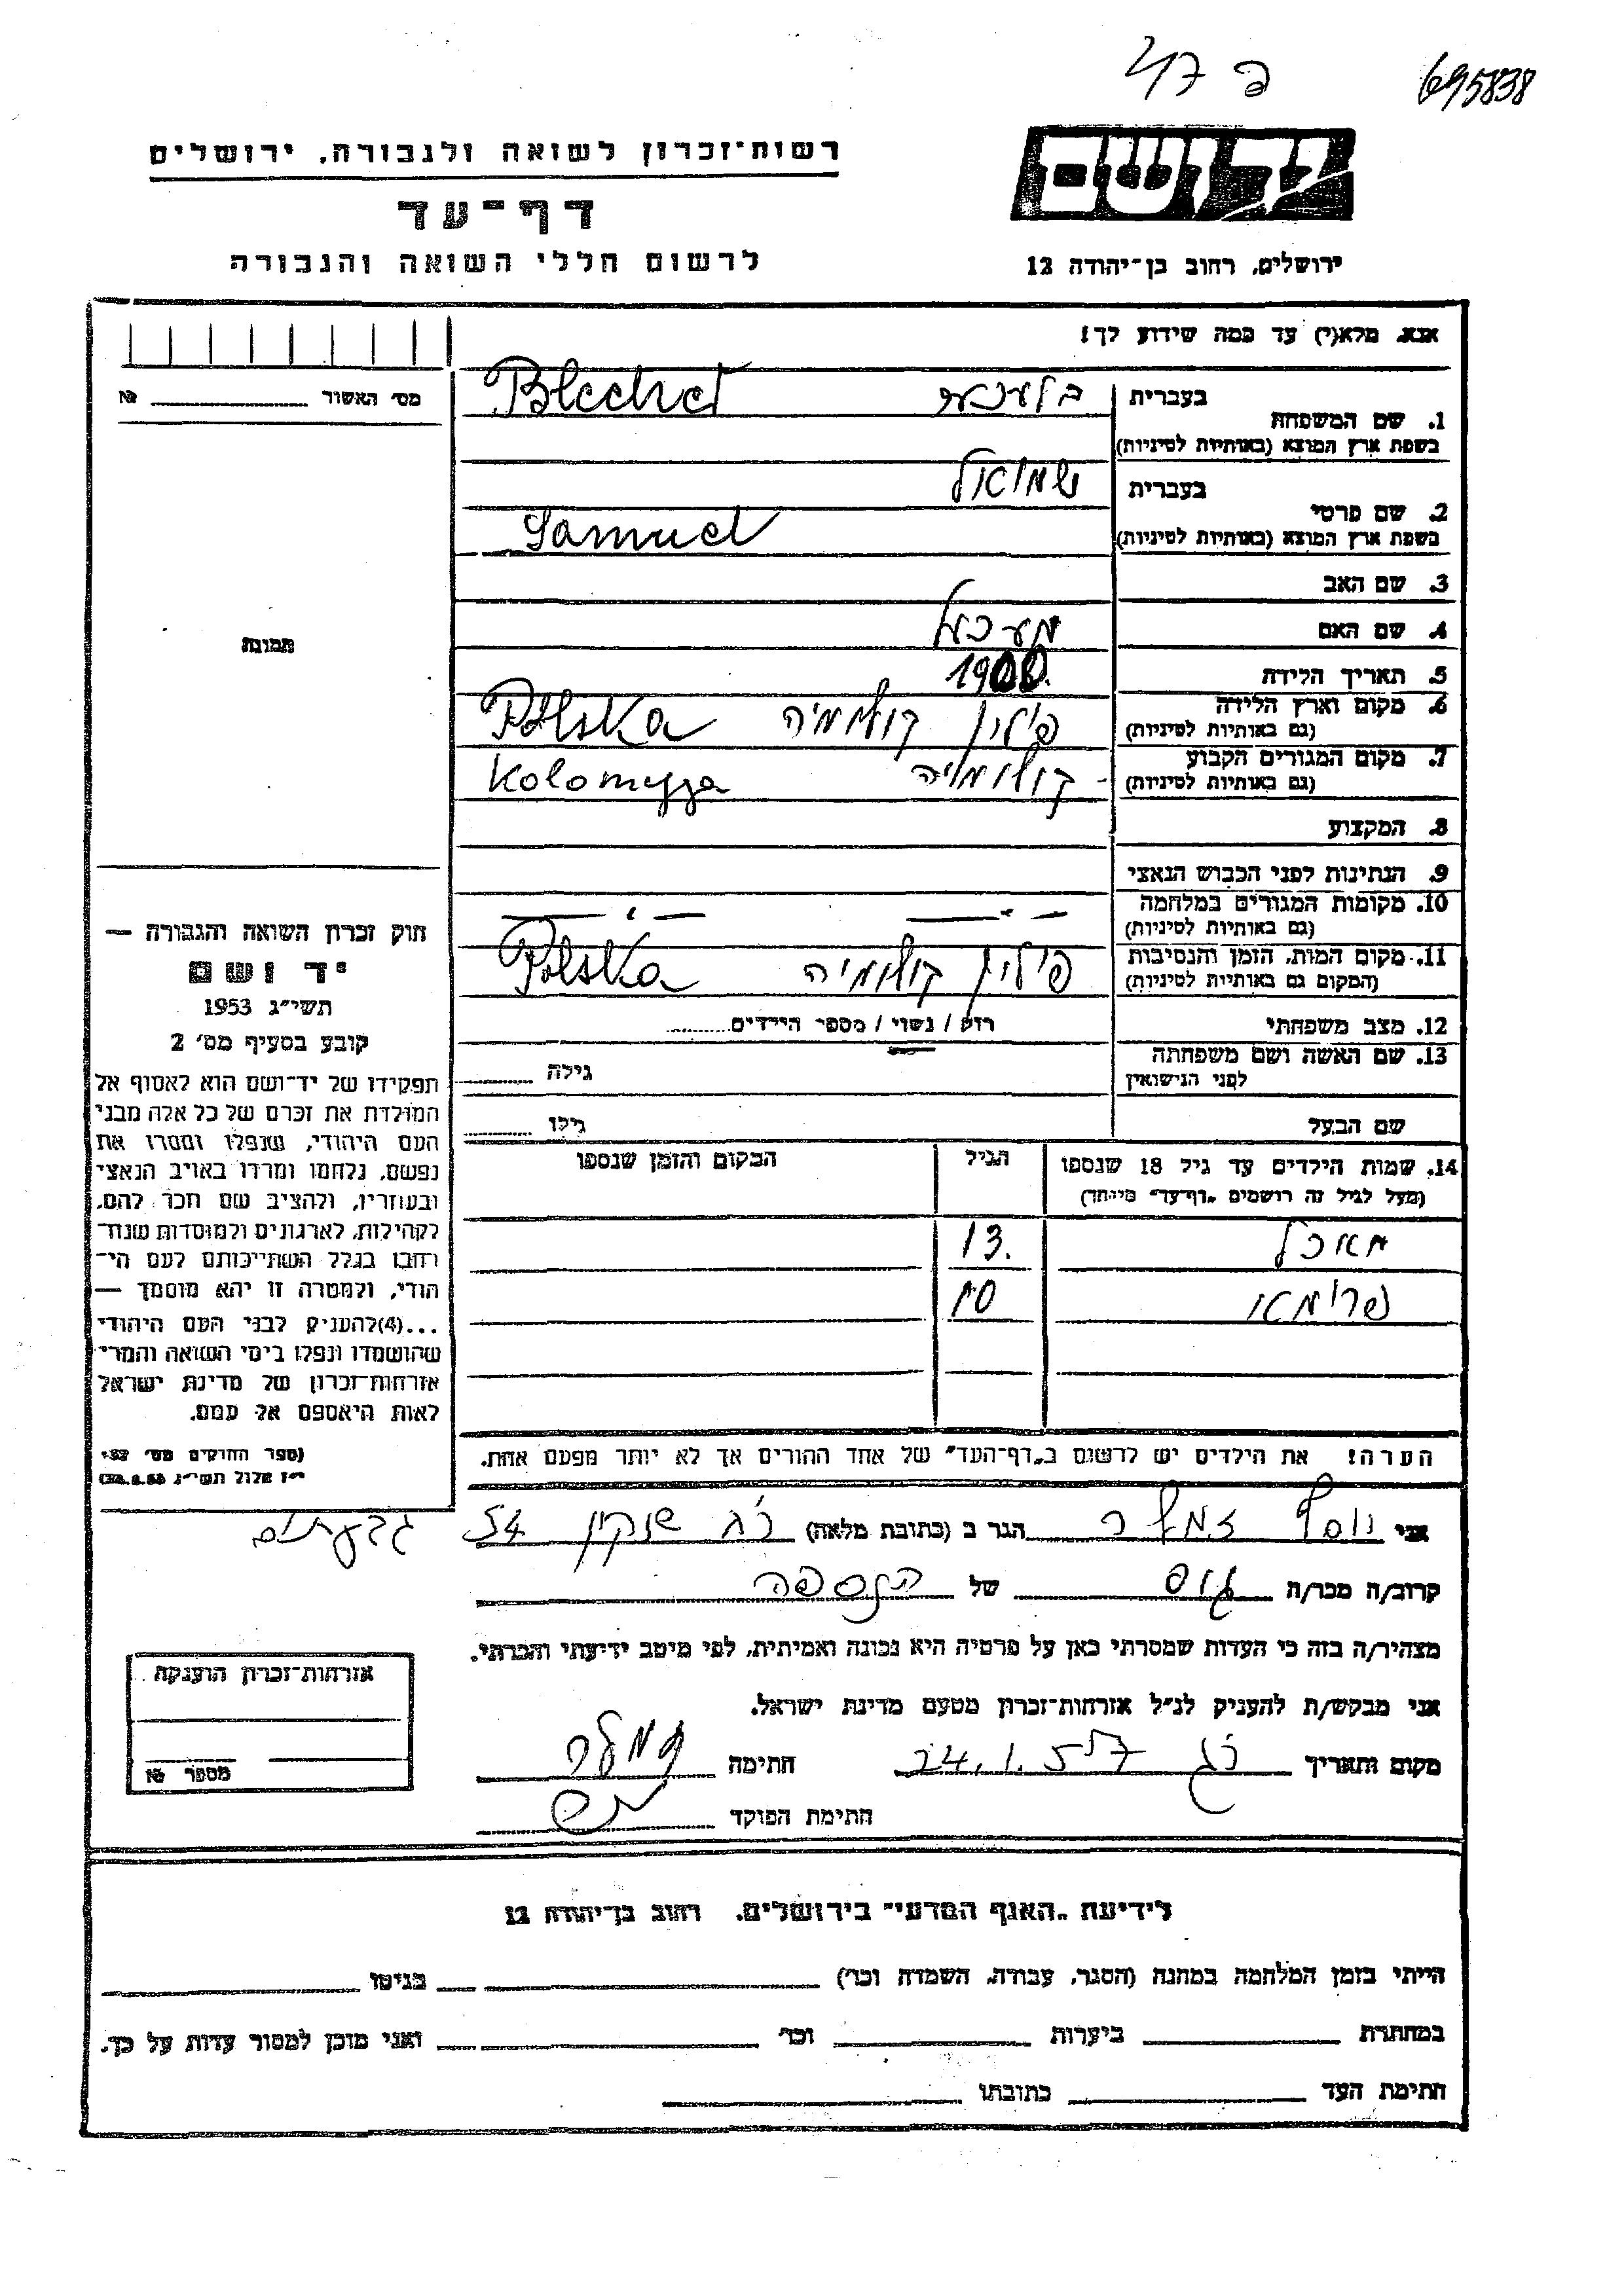 695838
רשות־זכרון לשואה ולגבורה, ירושלים
דף־עד
לרשום חללי השואה והגבורה
יד ושם
ירושלים, רחוב בן־יהודה 12
אנא, מלא(י) עד כמה שידוע לך!
מס׳ האשור № ______
1. שם המשפחה בעברית
בשפת ארץ המוצא (באותיות לטיניות)
Blechet
2. שם פרטי בעברית שמואל
בשפת ארץ המוצא (באותיות לטיניות) Samuel
3. שם האב
4. שם האם
5. תאריך הלידה 1900.
6. מקום וארץ הלידה פולין קולומיה Polska
(גם באותיות לטיניות)
7. מקום המגורים הקבוע קולומיה Kolomyja
(גם באותיות לטיניות)
8. המקצוע
9. הנתינות לפני הכבוש הנאצי
10. מקומות המגורים במלחמה
(גם באותיות לטיניות)
11. מקום המות, הזמן והנסיבות פולין קולומיה Polska
(המקום גם באותיות לטיניות)
12. מצב משפחתי רוק / נשוי / מספר הילדים
13. שם האשה ושם משפחתה גילה
לפני הנישואין
שם הבעל גילו
14. שמות הילדים עד גיל 18 שנספו הגיל המקום והזמן שנספו
(מעל לגיל זה רושמים „דף־עד" מיוחד)
13.
10
הערה! את הילדים יש לרשום ב„דף־העד" של אחד ההורים אך לא יותר מפעם אחת.
תמונה
חוק זכרון השואה והגבורה —
יד ושם
תשי״ג 1953
קובע בסעיף מס׳ 2
תפקידו של יד־ושם הוא לאסוף אל
המולדת את זכרם של כל אלה מבני
העם היהודי, שנפלו ומסרו את
נפשם, נלחמו ומרדו באויב הנאצי
ובעוזריו, ולהציב שם וזכר להם,
לקהילות, לארגונים ולמוסדות שנח־
רבו בגלל השתייכותם לעם הי־
הודי, ולמטרה זו יהא מוסמך —
...(4)להעניק לבני העם היהודי
שהושמדו ונפלו בימי השואה והמרי
אזרחות־זכרון של מדינת ישראל
לאות היאספם אל עמם.
(ספר החוקים מס׳
י״ז אלול תשי״ג
אני יוסף הגר ב (כתובת מלאה) רג שנקין 54 גבעתיים
קרוב/ה מכר/ה גיס של הנספה
מצהיר/ה בזה כי העדות שמסרתי כאן על פרטיה היא נכונה ואמיתית, לפי מיטב ידיעתי והכרתי.
אני מבקש/ת להעניק לנ״ל אזרחות־זכרון מטעם מדינת ישראל.
מקום ותאריך רג 24.1.57 חתימה
חתימת הפוקד
אזרחות־זכרון הוענקה
מספר №
לידיעת „האגף המדעי" בירושלים, רחוב בן־יהודה 12
הייתי בזמן המלחמה במחנה (הסגר, עבודה, השמדה וכו׳) ______ בגיטו ______
במחתרת ______ ביערות ______ וכו׳ ______ ואני מוכן למסור עדות על כך.
חתימת העד ______ כתובתו ______